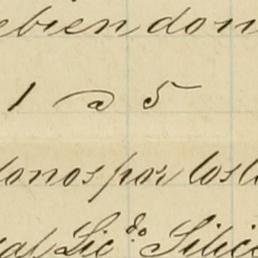 ebiendon
1 a 5
donos por los
Lic.do Silic